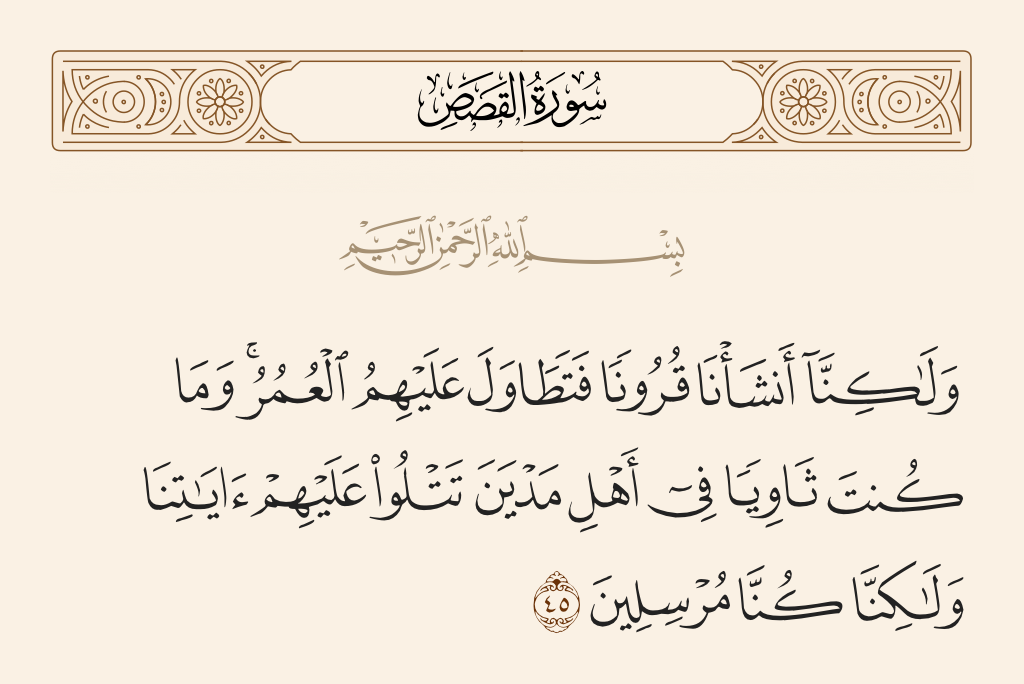 سُورَةُ القَصَصِ
بِسْمِ ٱللَّهِ ٱلرَّحْمَٰنِ ٱلرَّحِيمِ
وَلَٰكِنَّآ أَنشَأْنَا قُرُونًا فَتَطَاوَلَ عَلَيْهِمُ ٱلْعُمُرُ ۚ وَمَا
كُنتَ ثَاوِيًا فِىٓ أَهْلِ مَدْيَنَ تَتْلُوا۟ عَلَيْهِمْ ءَايَٰتِنَا
وَلَٰكِنَّا كُنَّا مُرْسِلِينَ ٤٥